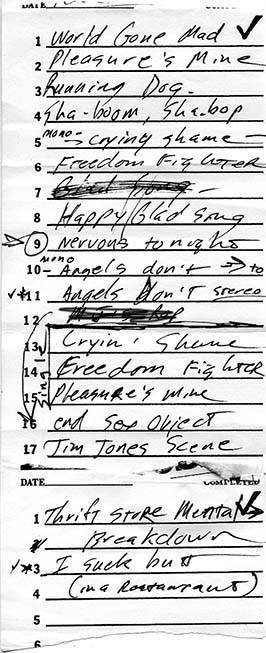 DATE
1 World Gone Mad ✓
2 Pleasure's Mine
3 Running Dog.
4 Sha-boom, Sha-bop
5 mono → crying shame -
6 Freedom Fighter
7 Glad Song -
8 Happy/Glad Song
9 nervous tonight
10 - mono Angels don't → to
✓* 11 Angels Don't Stereo
12
13 Cryin' Shame
14 Freedom Fighter
15 Pleasure's mine
16 end Sex Object
17 Jim Jones Scene
DATE COMPLETED
1 Thrift Store Mental ✓
Breakdown
✓* 3 I suck butt
4 (in a Restaurant)
5
6